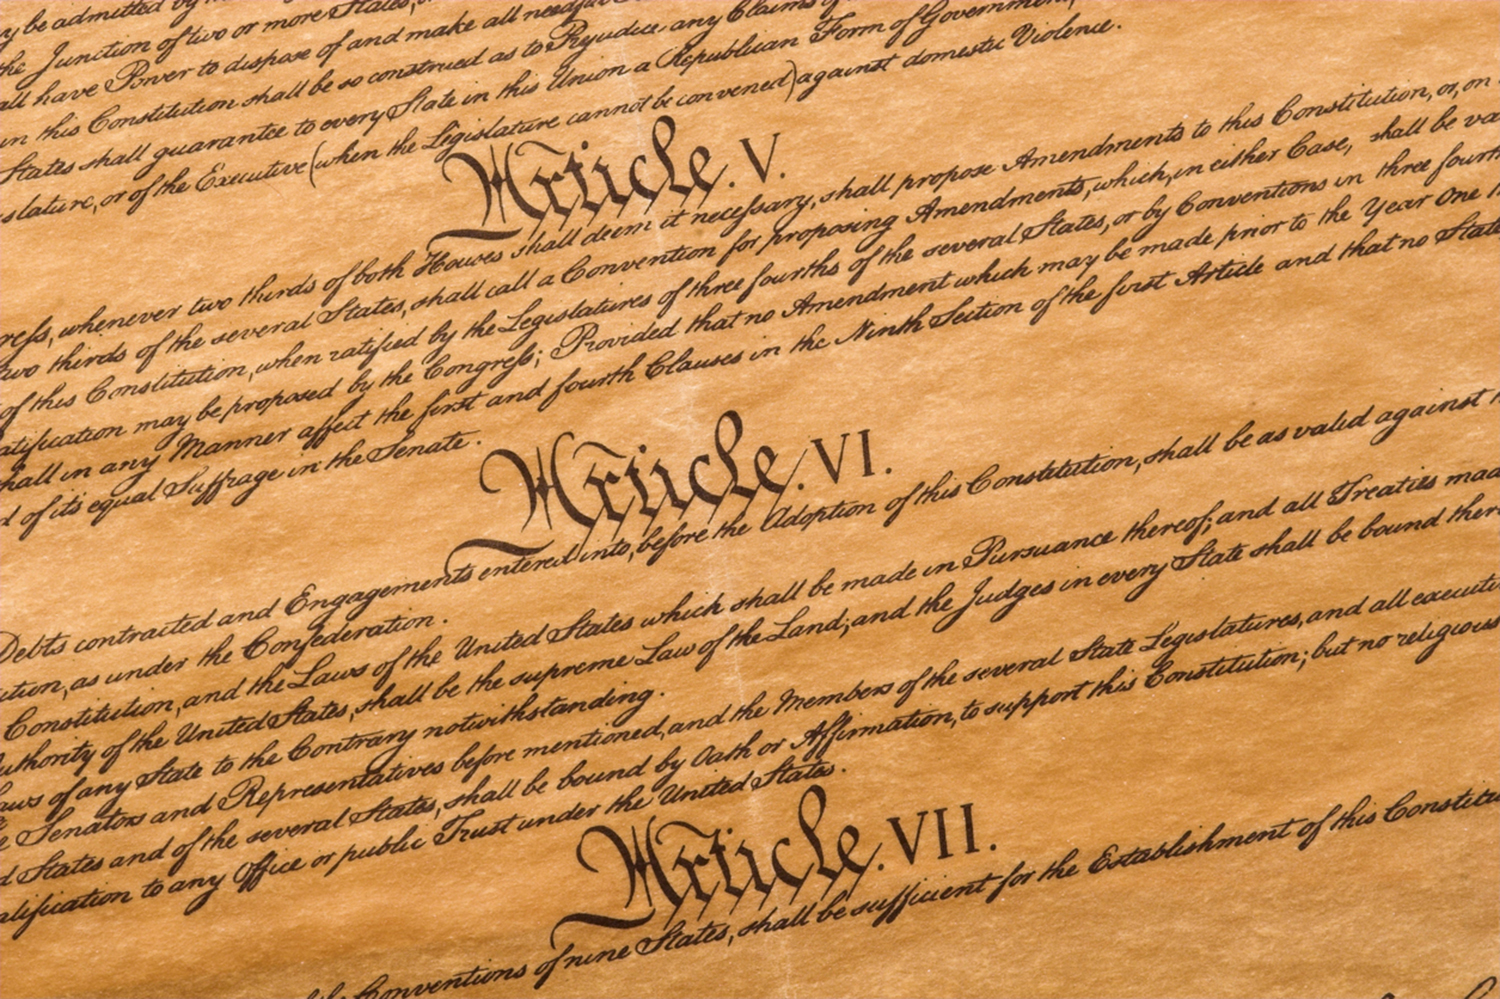 be admitted by
the Junction of two or more States,
all have Power to dispose of and make all needful
in this Constitution shall be so construed as to Prejudice any Claims of
States shall guarantee to every State in this Union a Republican Form of Government,
islature, or of the Executive (when the Legislature cannot be convened) against domestic Violence.
Article. V.
ress, whenever two thirds of both Houses shall deem it necessary, shall propose Amendments to this Constitution, or, on
two thirds of the several States, shall call a Convention for proposing Amendments, which, in either Case, shall be va
of this Constitution, when ratified by the Legislatures of three fourths of the several States, or by Conventions in three fourth
atification may be proposed by the Congress; Provided that no Amendment which may be made prior to the Year One
hall in any Manner affect the first and fourth Clauses in the Ninth Section of the first Article and that no State
d of its equal Suffrage in the Senate.
Article. VI.
Debts contracted and Engagements entered into, before the Adoption of this Constitution, shall be as valid against
ution, as under the Confederation.
Constitution, and the Laws of the United States which shall be made in Pursuance thereof; and all Treaties mad
uthority of the United States, shall be the supreme Law of the Land; and the Judges in every State shall be bound ther
aws of any State to the Contrary notwithstanding.
e Senators and Representatives before mentioned, and the Members of the several State Legislatures, and all executi
d States and of the several States, shall be bound by Oath or Affirmation, to support this Constitution; but no religious
alification to any Office or public Trust under the United States.
Article. VII.
the Conventions of nine States, shall be sufficient for the Establishment of this Constitu